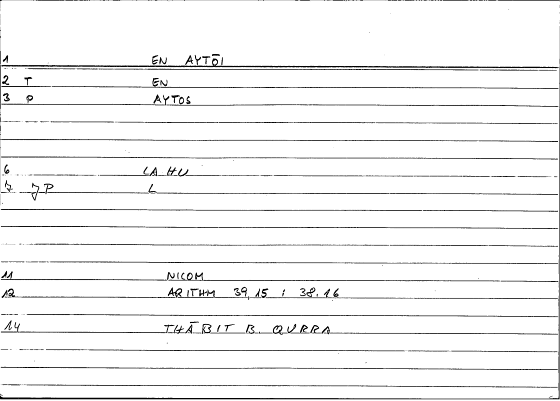 1 EN AYTŌI
2 T EN
3 P AYTOS
6 LA HU
7 JP L
11 NICOM
12 ARITHM 39,15 : 38.16
14 THĀBIT B. QURRA